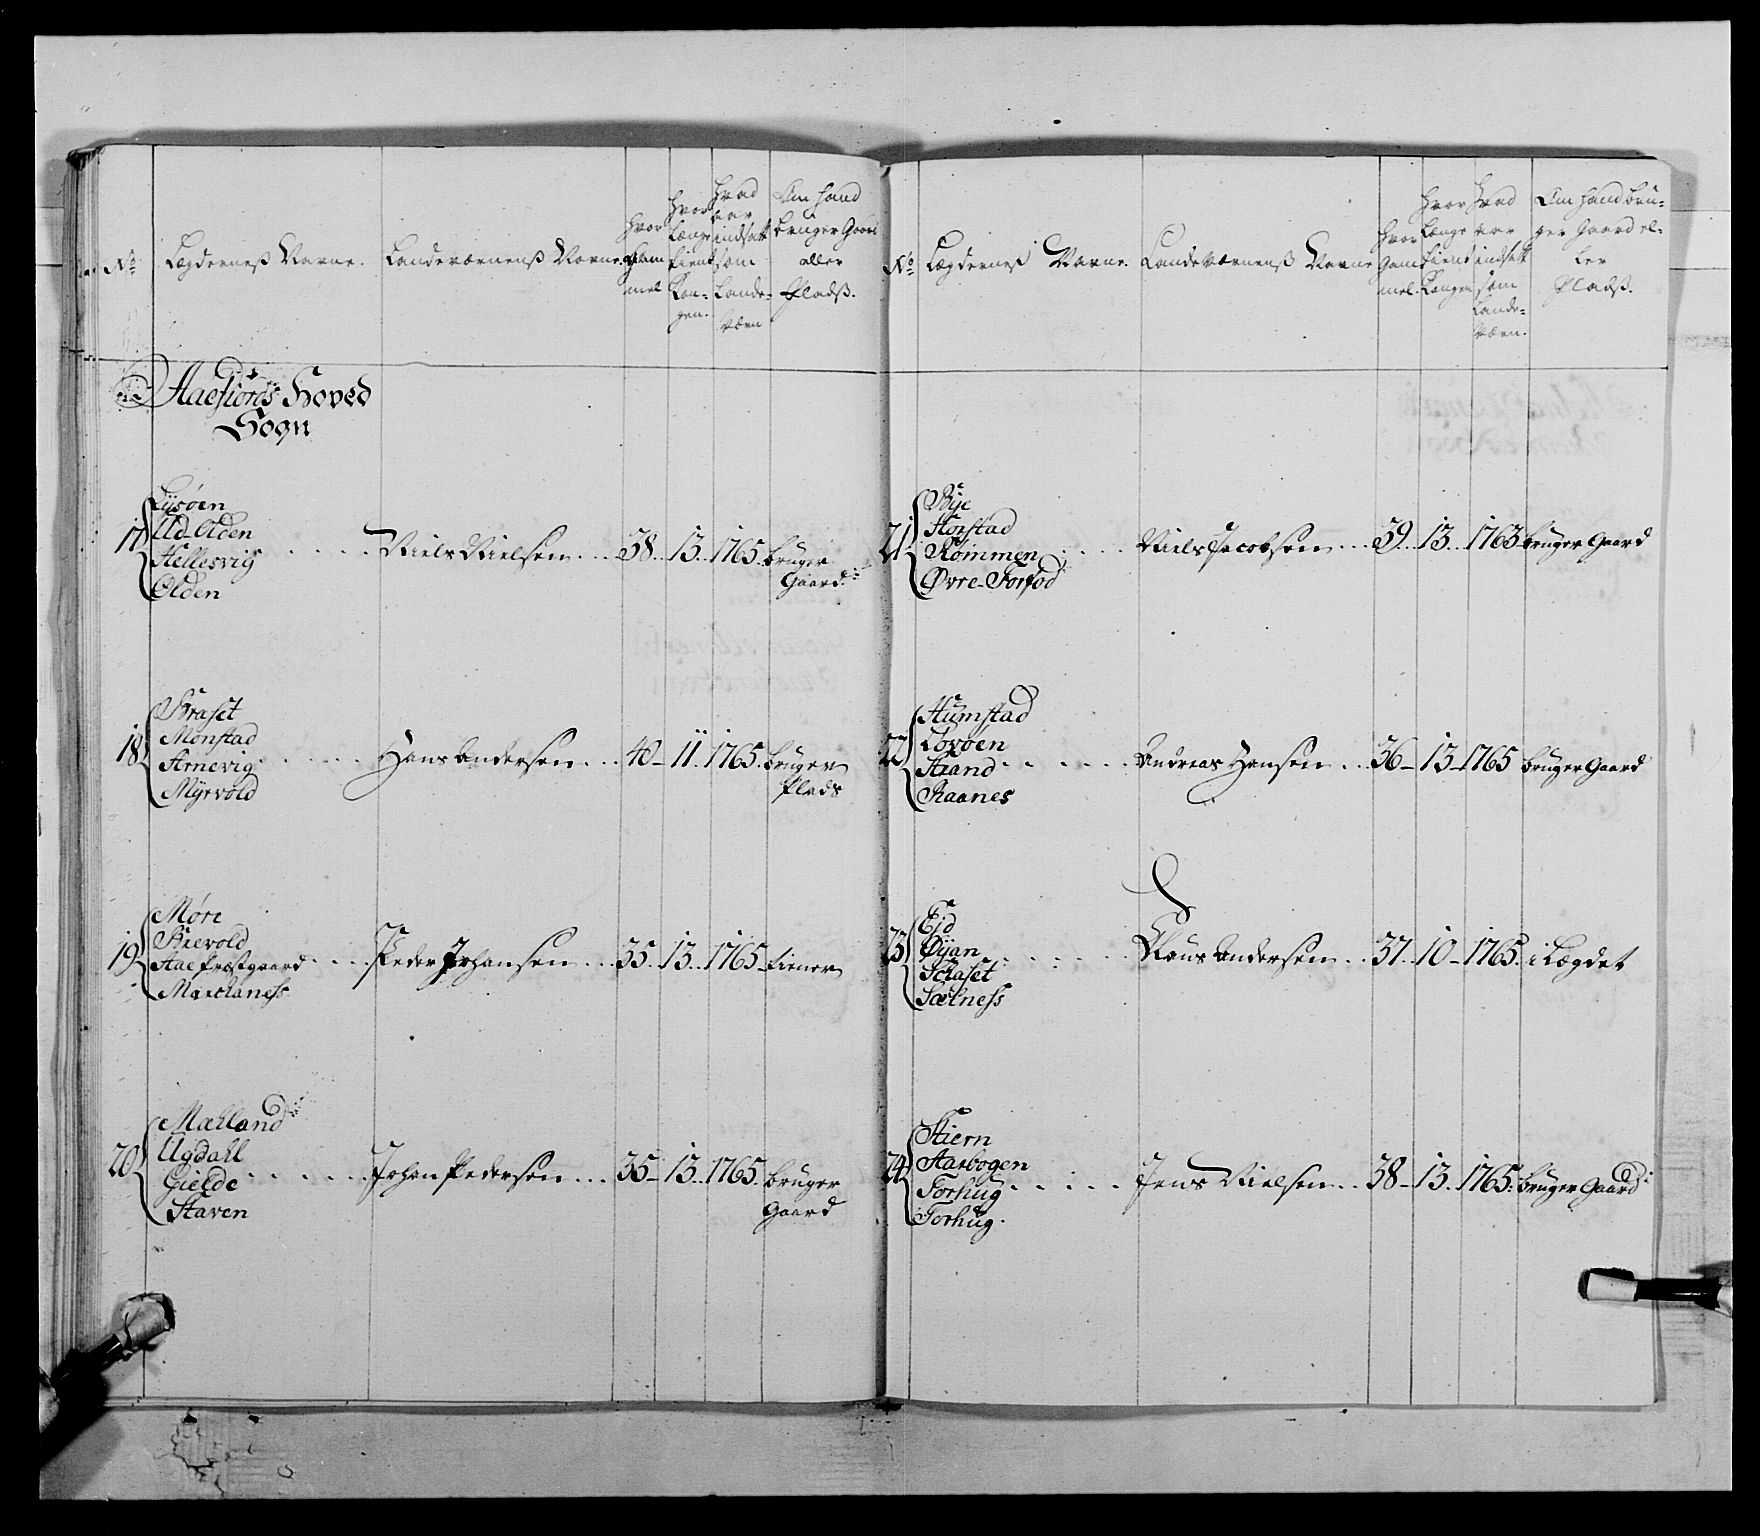 No
Lægderneß Navne.
Landeværnenß Navne.
hvor
Gam
mel
hvor
Længe
tient
Kon-
gen.
hvad
aar
indsatt
som
Lande-
værn
Om hand
bruger Gaard
eller
Pladß.
Aaefiords Hoved
Sogn
17
Lysøen
Ud-Olden
Hellesvig
Olden
Niels Nielsen
38
13
1765
bruger
Gaard
18
Braset
Monstad
Arnevig
Myrvold
Hans Andersen
40
11
1765
bruger
Plads
19
Møre
Aae Præstgaard
Peder Johansen
35
13
1765
tiener
20
Mæhland
Ugdahl
Gielde
Staven
Johan Pedersen
35
13
1765
bruger
Gaard
No
Lægderneß Navne.
Landeværnenß Navne
hvor
Gam
mel.
hvor
Længe
tient
Kongen
hvad
aar
indsatt
som
Lande-
værn.
Om hand bru-
ger Gaard el-
ler
Pladß.
21
Bye
Horstad
Rømmen
Øvre-Forfod
Niels Jacobsen
39
13
1763
bruger Gaard
22
Humstad
Aand
Raanes
Andreas Hansen
36
13
1765
bruger Gaard
23
Eid
Øyan
Selness
Claus Andersen
37
10
1765
i Lægdet
24
Stiern
Aarbogen
Forhug
Forhug
Jens Nielsen
38
13
1765
bruger Gaard